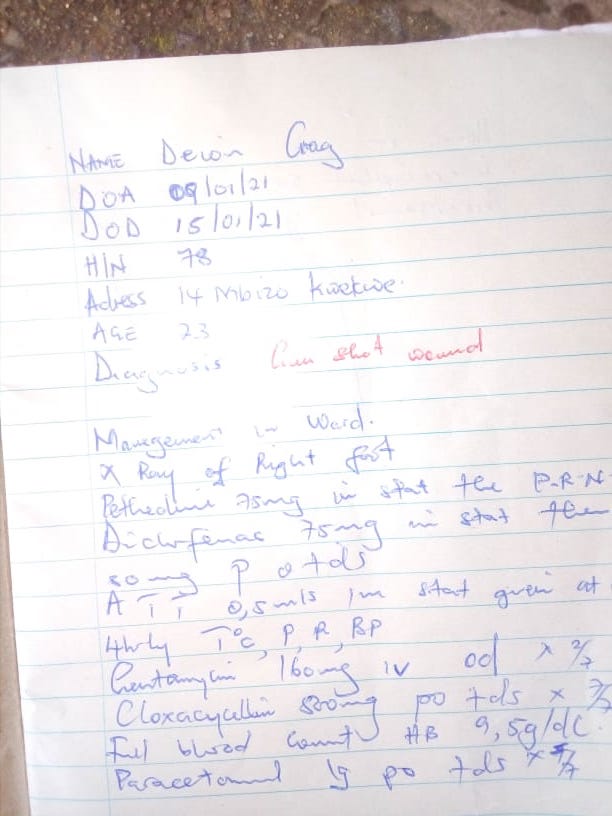 NAME Devon Crag
DOA 09/01/21
DOD 15/01/21
H/N 78
Adress 14 Mbizo Kwekwe.
AGE 23
Diagnosis Gun shot wound
Management in Ward.
X Ray of Right foot
Pethedine 75mg im stat the P.R.N
Diclofenac 75mg im stat then
50 mg p o tds
A T T 0,5mls im stat given at
4hrly T°C, P, R, BP
Gentamycin 160mg iv od x /7
Cloxacyallin 500mg po tds x /7
Full blood count HB 9,5g/dl
Paracetamol 1g po tds x /7